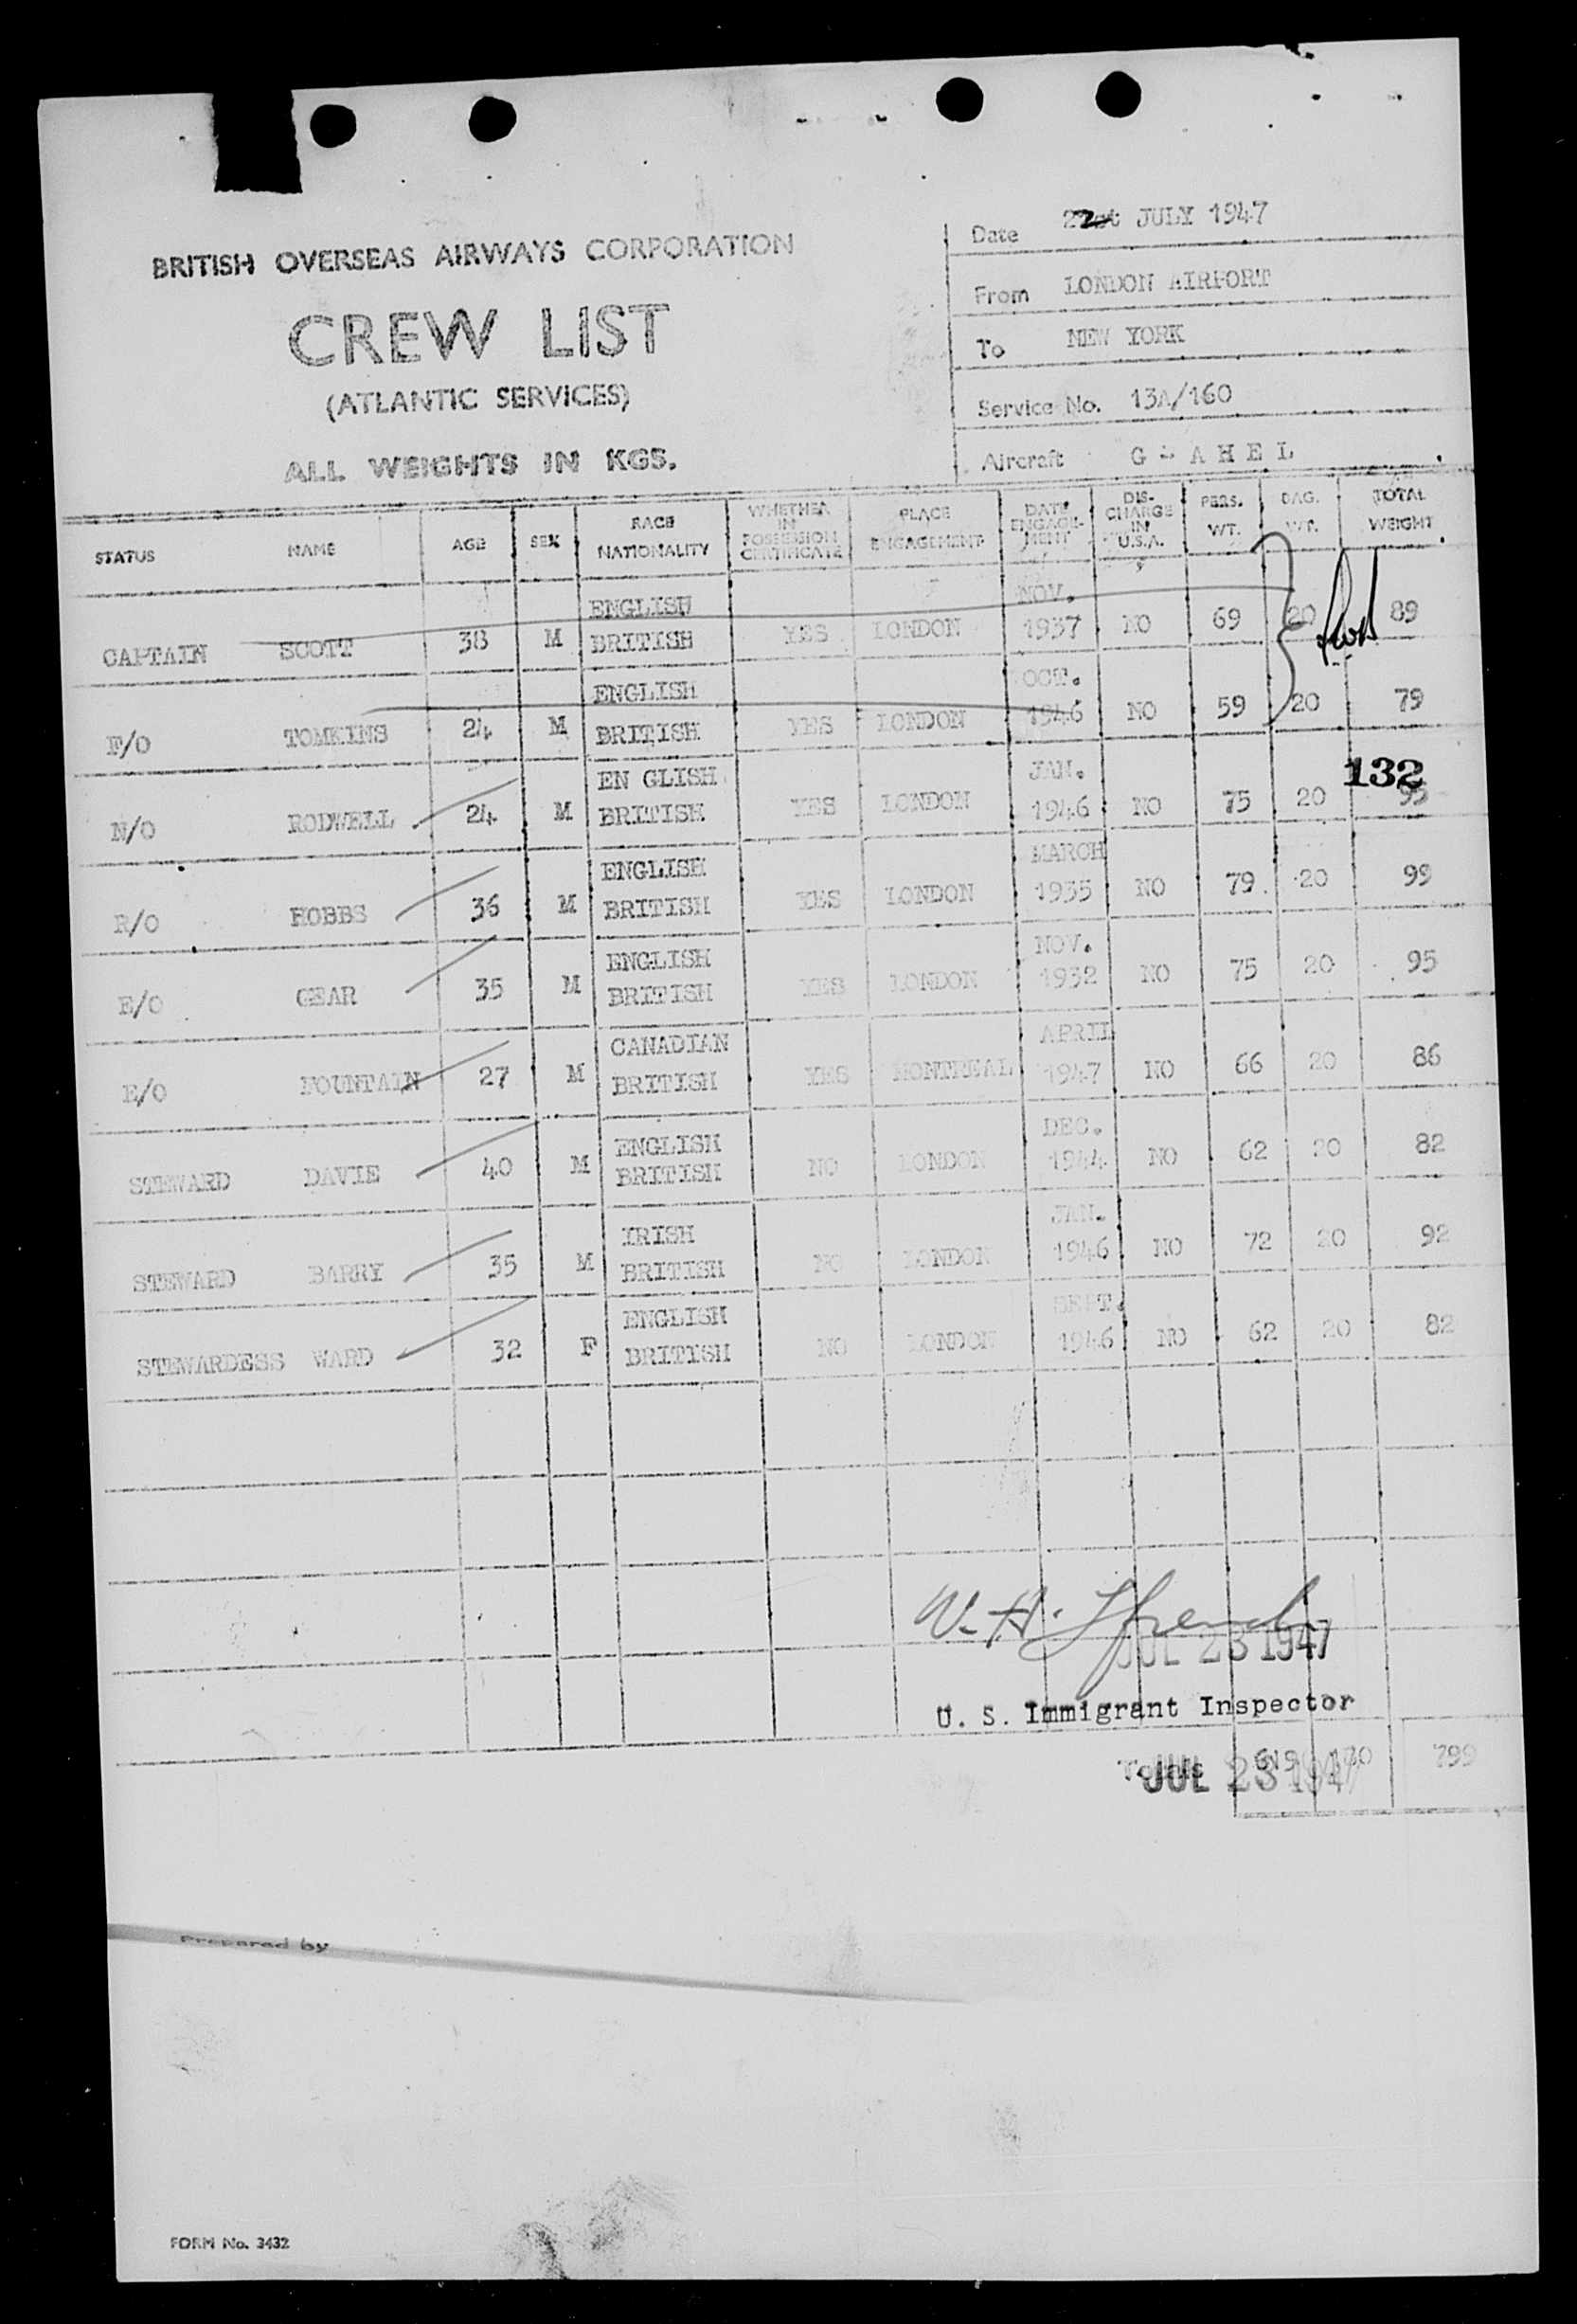 BRITISH OVERSEAS AIRWAYS CORPORATION
CREW LIST
(ATLANTIC SERVICES)
ALL WEIGHTS IN KGS.
Date 22 JULY 1947
From LONDON AIRPORT
To NEW YORK
Service No. 13A/160
Aircraft G - A H E L
STATUS NAME AGE SEX RACE NATIONALITY WHETHER IN POSSESSION CERTIFICATE PLACE ENGAGEMENT DATE ENGAGE-MENT DIS-CHARGE IN U.S.A. PERS. WT. BAG. WT. TOTAL WEIGHT
ENGLISH NOV.
CAPTAIN SCOTT 38 M BRITISH YES LONDON 1937 NO 69 20 89
ENGLISH OCT.
F/O TOMKINS 24 M BRITISH YES LONDON 1946 NO 59 20 79
EN GLISH JAN. 132
N/O RODWELL 24 M BRITISH YES LONDON 1946 NO 75 20 95
ENGLISH MARCH
R/O HOBBS 36 M BRITISH YES LONDON 1935 NO 79 20 99
ENGLISH NOV.
E/O GEAR 35 M BRITISH YES LONDON 1932 NO 75 20 95
CANADIAN APRIL
E/O FOUNTAIN 27 M BRITISH YES MONTREAL 1947 NO 66 20 86
ENGLISH DEC.
STEWARD DAVIE 40 M BRITISH NO LONDON 1944 NO 62 20 82
IRISH JAN.
STEWARD BARRY 35 M BRITISH NO LONDON 1946 NO 72 20 92
ENGLISH SEPT.
STEWARDESS WARD 32 F BRITISH NO LONDON 1946 NO 62 20 82
W. H.
JUL 23 1947
U. S. Immigrant Inspector
JUL 23 1947 619 180 799
Prepared by
FORM No. 3432